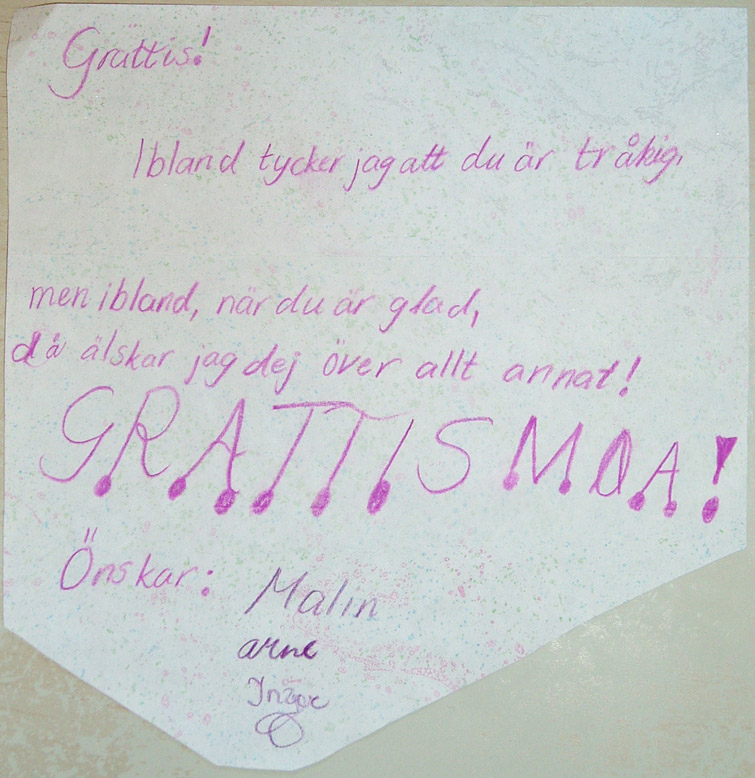 Grattis!
Ibland tycker jag att du är tråkig,
men ibland, när du är glad,
då älskar jag dej över allt annat!
GRATTIS MOA!
Önskar: Malin
arne
Inger